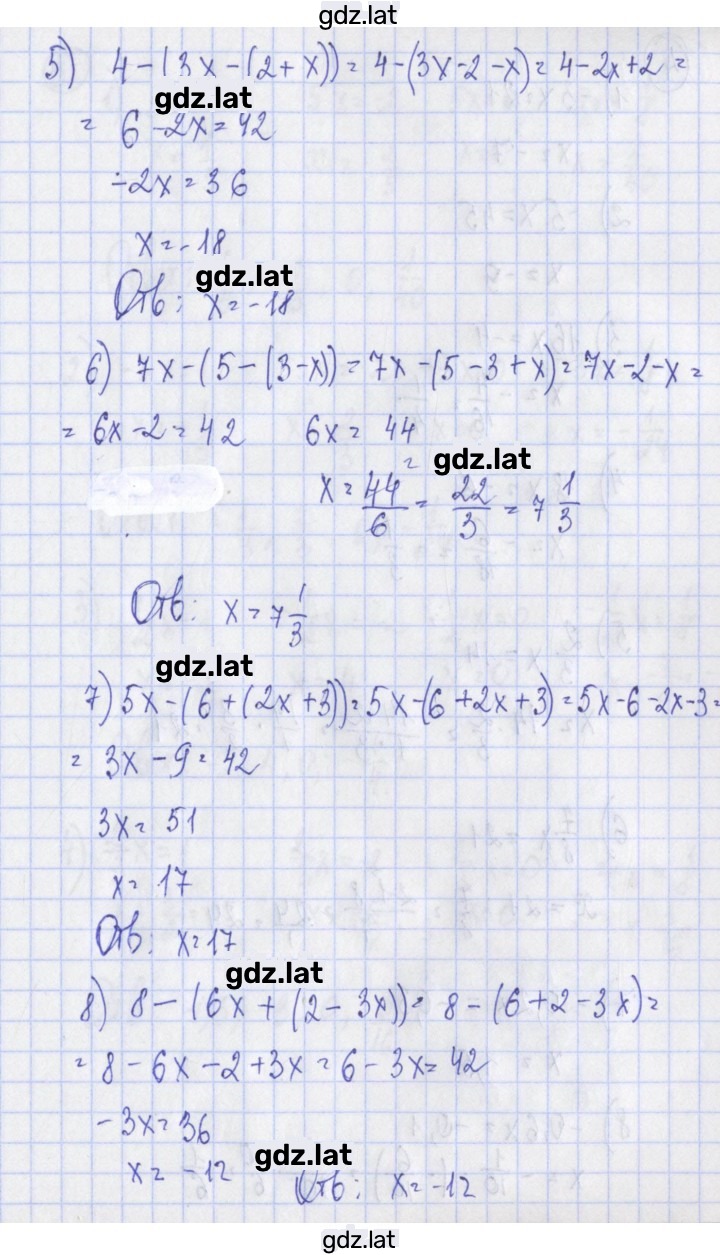 gdz.lat
5) 4-(3x-(2+x))=4-(3x-2-x)=4-2x+2=
gdz.lat
= 6-2x=42
-2x=36
x=-18
gdz.lat
Отв: x=-18
6) 7x-(5-(3-x))=7x-(5-3+x)=7x-2-x=
= 6x-2=42 6x=44
gdz.lat
x=44/6=22/3=7 1/3
Отв: x=7 1/3
gdz.lat
7) 5x-(6+(2x+3))=5x-(6+2x+3)=5x-6-2x-3=
= 3x-9=42
3x=51
x=17
Отв: x=17
gdz.lat
8) 8-(6x+(2-3x))=8-(6+2-3x)=
= 8-6x-2+3x=6-3x=42
-3x=36
gdz.lat
x=-12 Отв: x=-12
gdz.lat